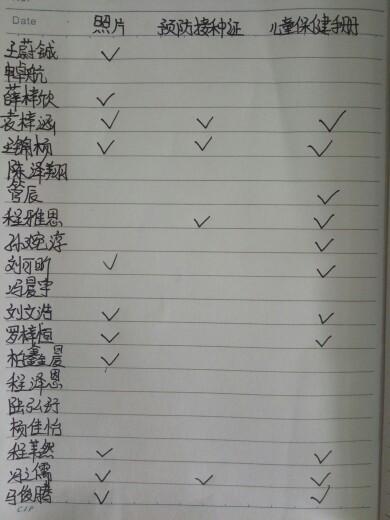 照片 预防接种证 儿童保健手册
Date
王蔚铖 ✓
韩航
薛梓欣 ✓
袁梓涵 ✓ ✓ ✓
王锦杨 ✓ ✓ ✓
陈泽翔
管辰 ✓
程雅恩 ✓ ✓
孙婉淳 ✓
刘可昕 ✓ ✓
冯晨宇
刘文浩 ✓ ✓
罗梓恒 ✓ ✓
柏鑫晨 ✓
程泽恩
陆弘纾
杨佳怡
程苇然 ✓ ✓
冯立儒 ✓ ✓ ✓
马俊腾 ✓ ✓